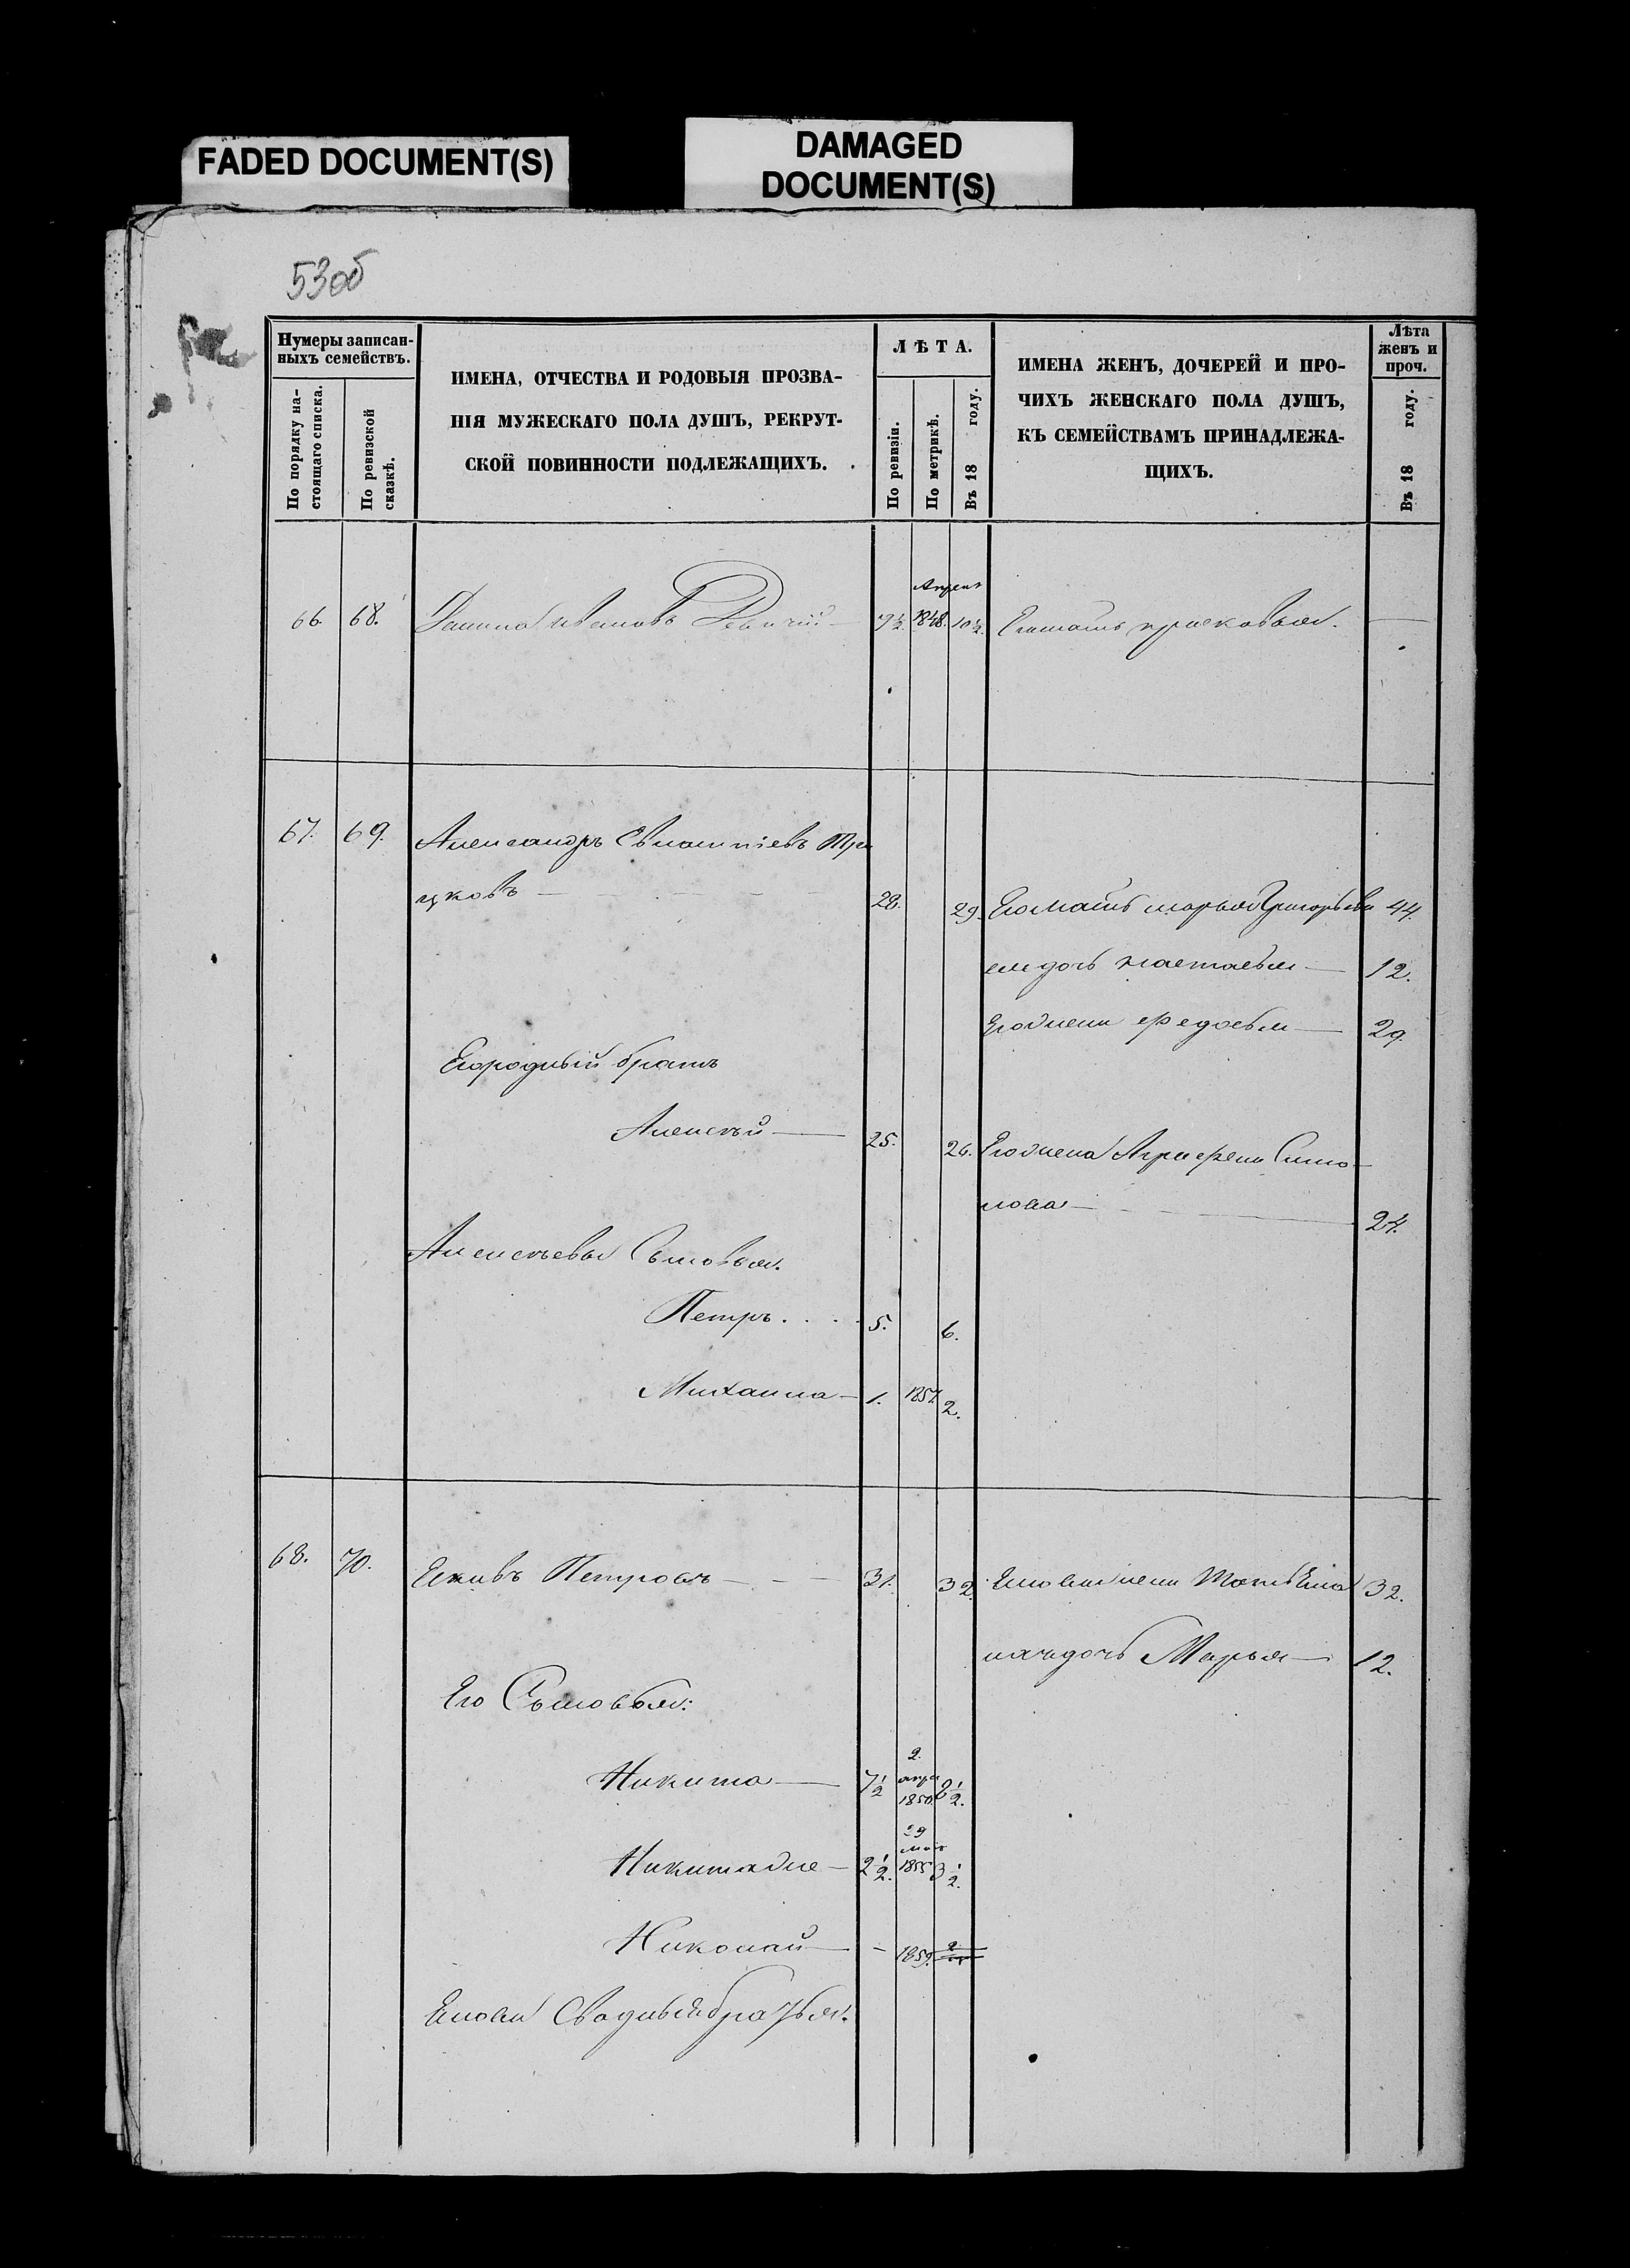 FADED DOCUMENT(S)
DAMAGED
DOCUMENT(S)
53об
Нумеры записан-
ныхъ семействъ.
По порядку на-
стоящаго списка.
По ревизской
сказкѣ.
ИМЕНА, ОТЧЕСТВА И РОДОВЫЯ ПРОЗВА-
НІЯ МУЖЕСКАГО ПОЛА ДУШЪ, РЕКРУТ-
СКОЙ ПОВИННОСТИ ПОДЛЕЖАЩИХЪ.
ЛѢТА.
По ревизіи.
По метрикѣ.
Въ 18 году.
ИМЕНА ЖЕНЪ, ДОЧЕРЕЙ И ПРО-
ЧИХЪ ЖЕНСКАГО ПОЛА ДУШЪ,
КЪ СЕМЕЙСТВАМЪ ПРИНАДЛЕЖА-
ЩИХЪ.
Лѣта
женъ и
проч.
Въ 18 году.
66. 68. Данила Ивановъ 9½. Апреля 1848. 10½. Его мать —
67. 69. Александръ Евлампіевъ Тра
цковъ — 28. 29. Его мать марья Григорьева 44.
ея дочь настасья — 12.
Его жена Федосья — 29.
Его родный братъ
Алексѣй — 25. 26. Его жена Аграфена Само
лова — 24.
Алексѣевы Сыновья.
Петръ . . . . 5. 6.
Михаила — 1. 1857. 2.
68. 70. Петровъ — 31. 32. жена 32.
дочь Марья — 12.
Его Сыновья:
Никита — 7½ 2. апре 1850. 8½.
2½. 29 мая 1855 3½.
Николай — - 1859.
Сводные братья.